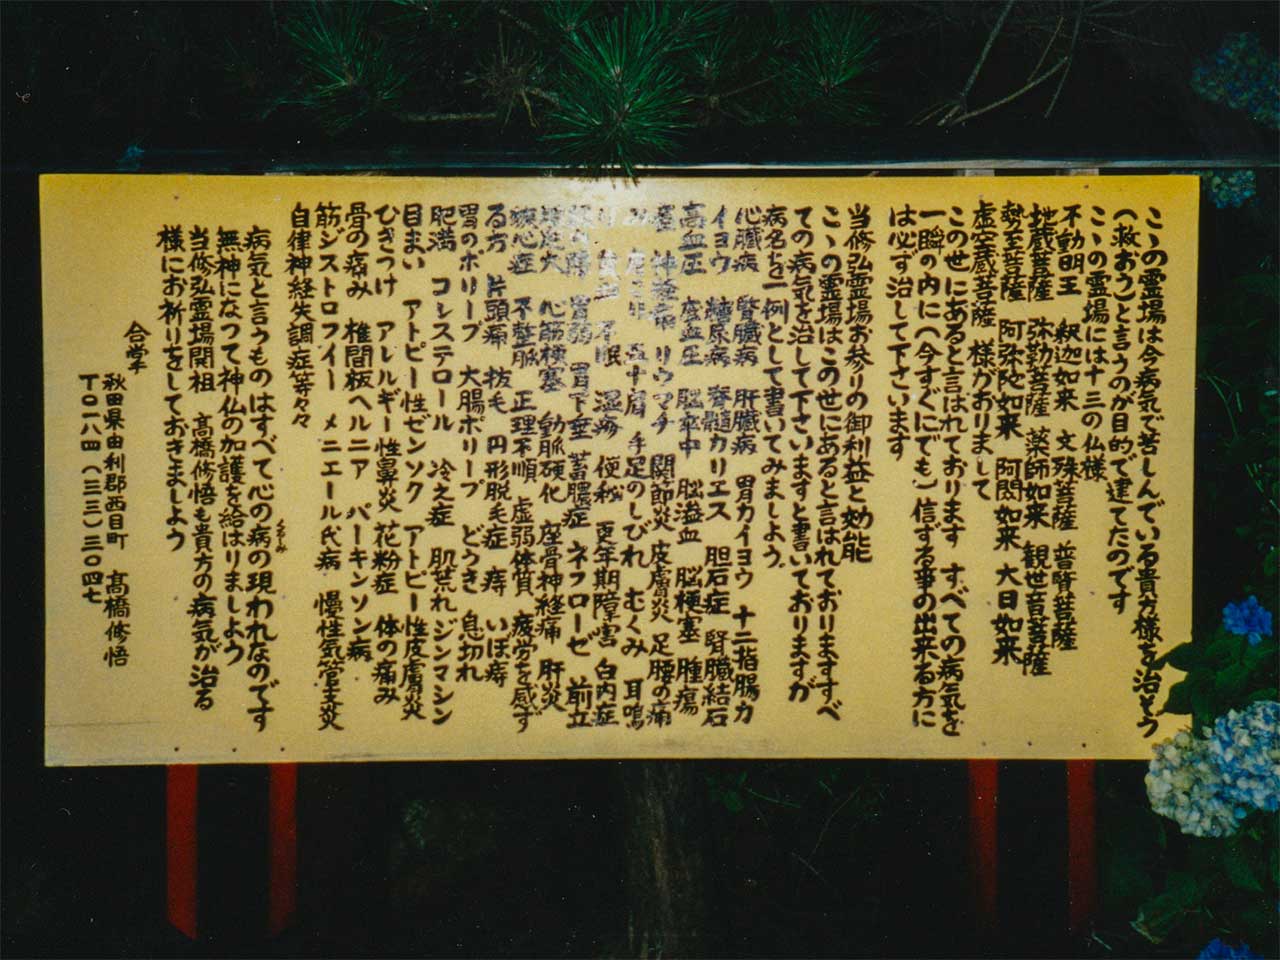 こゝの霊場は今病気で苦しんでいる貴方様を治そう
(救おう)と言うのが目的で建てたのです
こゝの霊場には十三の仏様
不動明王 釈迦如来 文殊菩薩 普賢菩薩
地蔵菩薩 弥勒菩薩 薬師如来 観世音菩薩
勢至菩薩 阿弥陀如来 阿閦如来 大日如来
虚空蔵菩薩 様がおりまして
この世にあると言はれております すべての病気を
一瞬の内に(今すぐにでも)信する事の出来る方に
は必ず治して下さいます
当修弘霊場お参りの御利益と効能
こゝの霊場はこの世にあると言はれておりますすべ
ての病気を治して下さいますと書いておりますが
病名を一例として書いてみましよう。
心臓病 腎臓病 肝臓病 胃カイヨウ 十二指腸カ
イヨウ 糖尿病 脊髄カリエス 胆石症 腎臓結石
高血圧 低血圧 脳卒中 脳溢血 脳梗塞 腫瘍
神経痛 リウマチ 関節炎 皮膚炎 足腰の痛
み 五十肩 手足のしびれ むくみ 耳鳴
不眠 湿疹 便秘 更年期障害 白内症
胃弱 胃下垂 蓄膿症 ネフローゼ 前立
腺肥大 心筋梗塞 動脈硬化 座骨神経痛 肝炎
狭心症 不整脈 正理不順 虚弱体質 疲労を感ず
る方 片頭痛 抜毛 円形脱毛症 痔 いぼ痔
胃のポリープ 大腸ポリープ どうき 息切れ
肥満 コレステロール 冷え症 肌荒れ ジンマシン
目まい アトピー性ゼンソク アトピー性皮膚炎
ひきつけ アレルギー性鼻炎 花粉症 体の痛み
骨の痛み 椎間板ヘルニア パーキンソン病
筋ジストロフイー メニエール氏病 慢性気管支炎
自律神経失調症等々
病気と言うものはすべて心の病の現われなのです
無神になつて神仏の加護を給はりましよう
当修弘霊場開祖 髙橋修悟も貴方の病気が治る
様にお祈りをしておきましよう
合掌
秋田県由利郡西目町 髙橋修悟
T〇一八四(三三)三〇四七